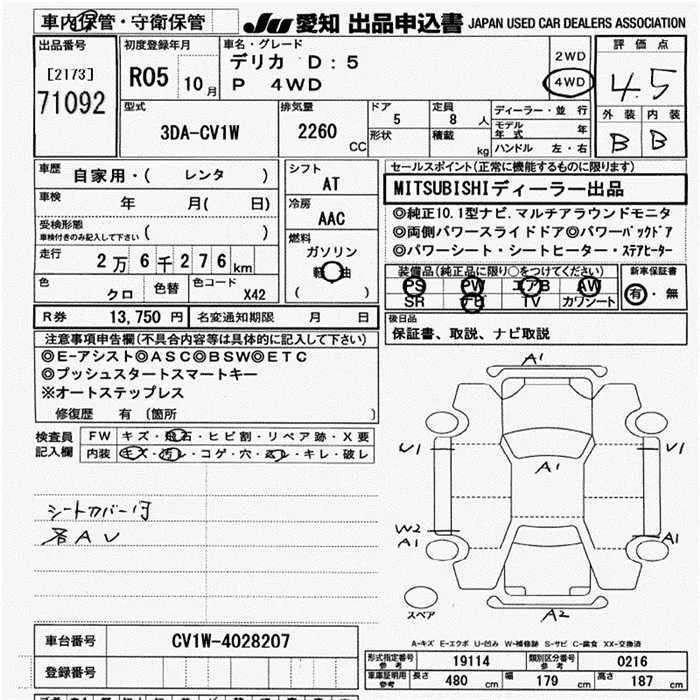 車内保管・守衛保管
JU 愛知 出品申込書 JAPAN USED CAR DEALERS ASSOCIATION
出品番号
[2173]
71092
初度登録年月
R05 10月
車名・グレード
デリカ D:5
P 4WD
2WD
4WD
評価点
4.5
外装 内装
B B
型式
3DA-CV1W
排気量
2260 CC
ドア
5
形状
定員
8 人
積載
kg
ディーラー・並行
モデル年式 年
ハンドル 左・右
車歴
自家用・( レンタ )
車検
年 月( 日)
受検形態
車検付きのみ記入して下さい ( )
走行
2万6千276km
色
クロ
色替
色コード
X42
シフト
AT
冷房
AAC
燃料
ガソリン
軽油
( )
セールスポイント(正常に機能するものに限ります)
MITSUBISHIディーラー出品
◎純正10.1型ナビ.マルチアラウンドモニタ
◎両側パワースライドドア◎パワーバックドア
◎パワーシート・シートヒーター・ステアヒーター
装備品(純正品に限り○をつけてください)
PS PW エアB AW
SR ナビ TV カワシート
新車保証書
有・無
R券 13,750 円
名変通知期限 月 日
後日品
保証書、取説、ナビ取説
注意事項申告欄(不具合内容等は具体的に記入して下さい)
◎E-アシスト◎ASC◎BSW◎ETC
◎プッシュスタートスマートキー
※オートステップレス
修復歴 有 〔箇所 〕
検査員記入欄
FW キズ・飛石・ヒビ割・リペア跡・X要
内装 キズ・汚レ・コゲ・穴・スレ・キレ・破レ
シートカバー付
各AU
A1
U1
A1
V1
W2
A1
A1
スペア
A2
A-キズ E-エクボ U-凹み W-補修跡 S-サビ C-腐食 XX-交換済
車台番号 CV1W-4028207
登録番号
形式指定番号 参考 19114
類別区分番号 参考 0216
車庫証明用 参考
長さ 480 cm
幅 179 cm
高さ 187 cm